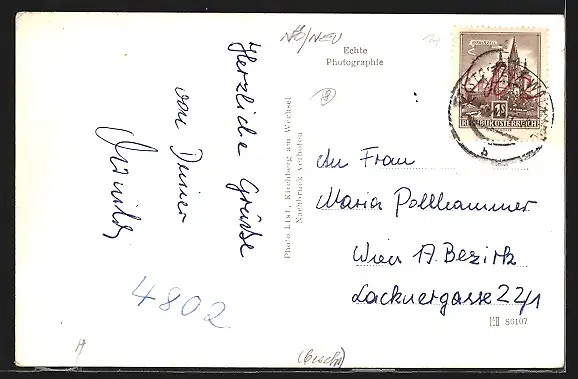 Herzliche Grüße
von Deiner
4802
NÖ/NEU
Echte
Photographie
Photo List, Kirchberg am Wechsel
Nachdruck verboten
REPUBLIK ÖSTERREICH
An Frau
Maria Pollhammer
Wien 17. Bezirk
Lacknergasse 22/1
86107